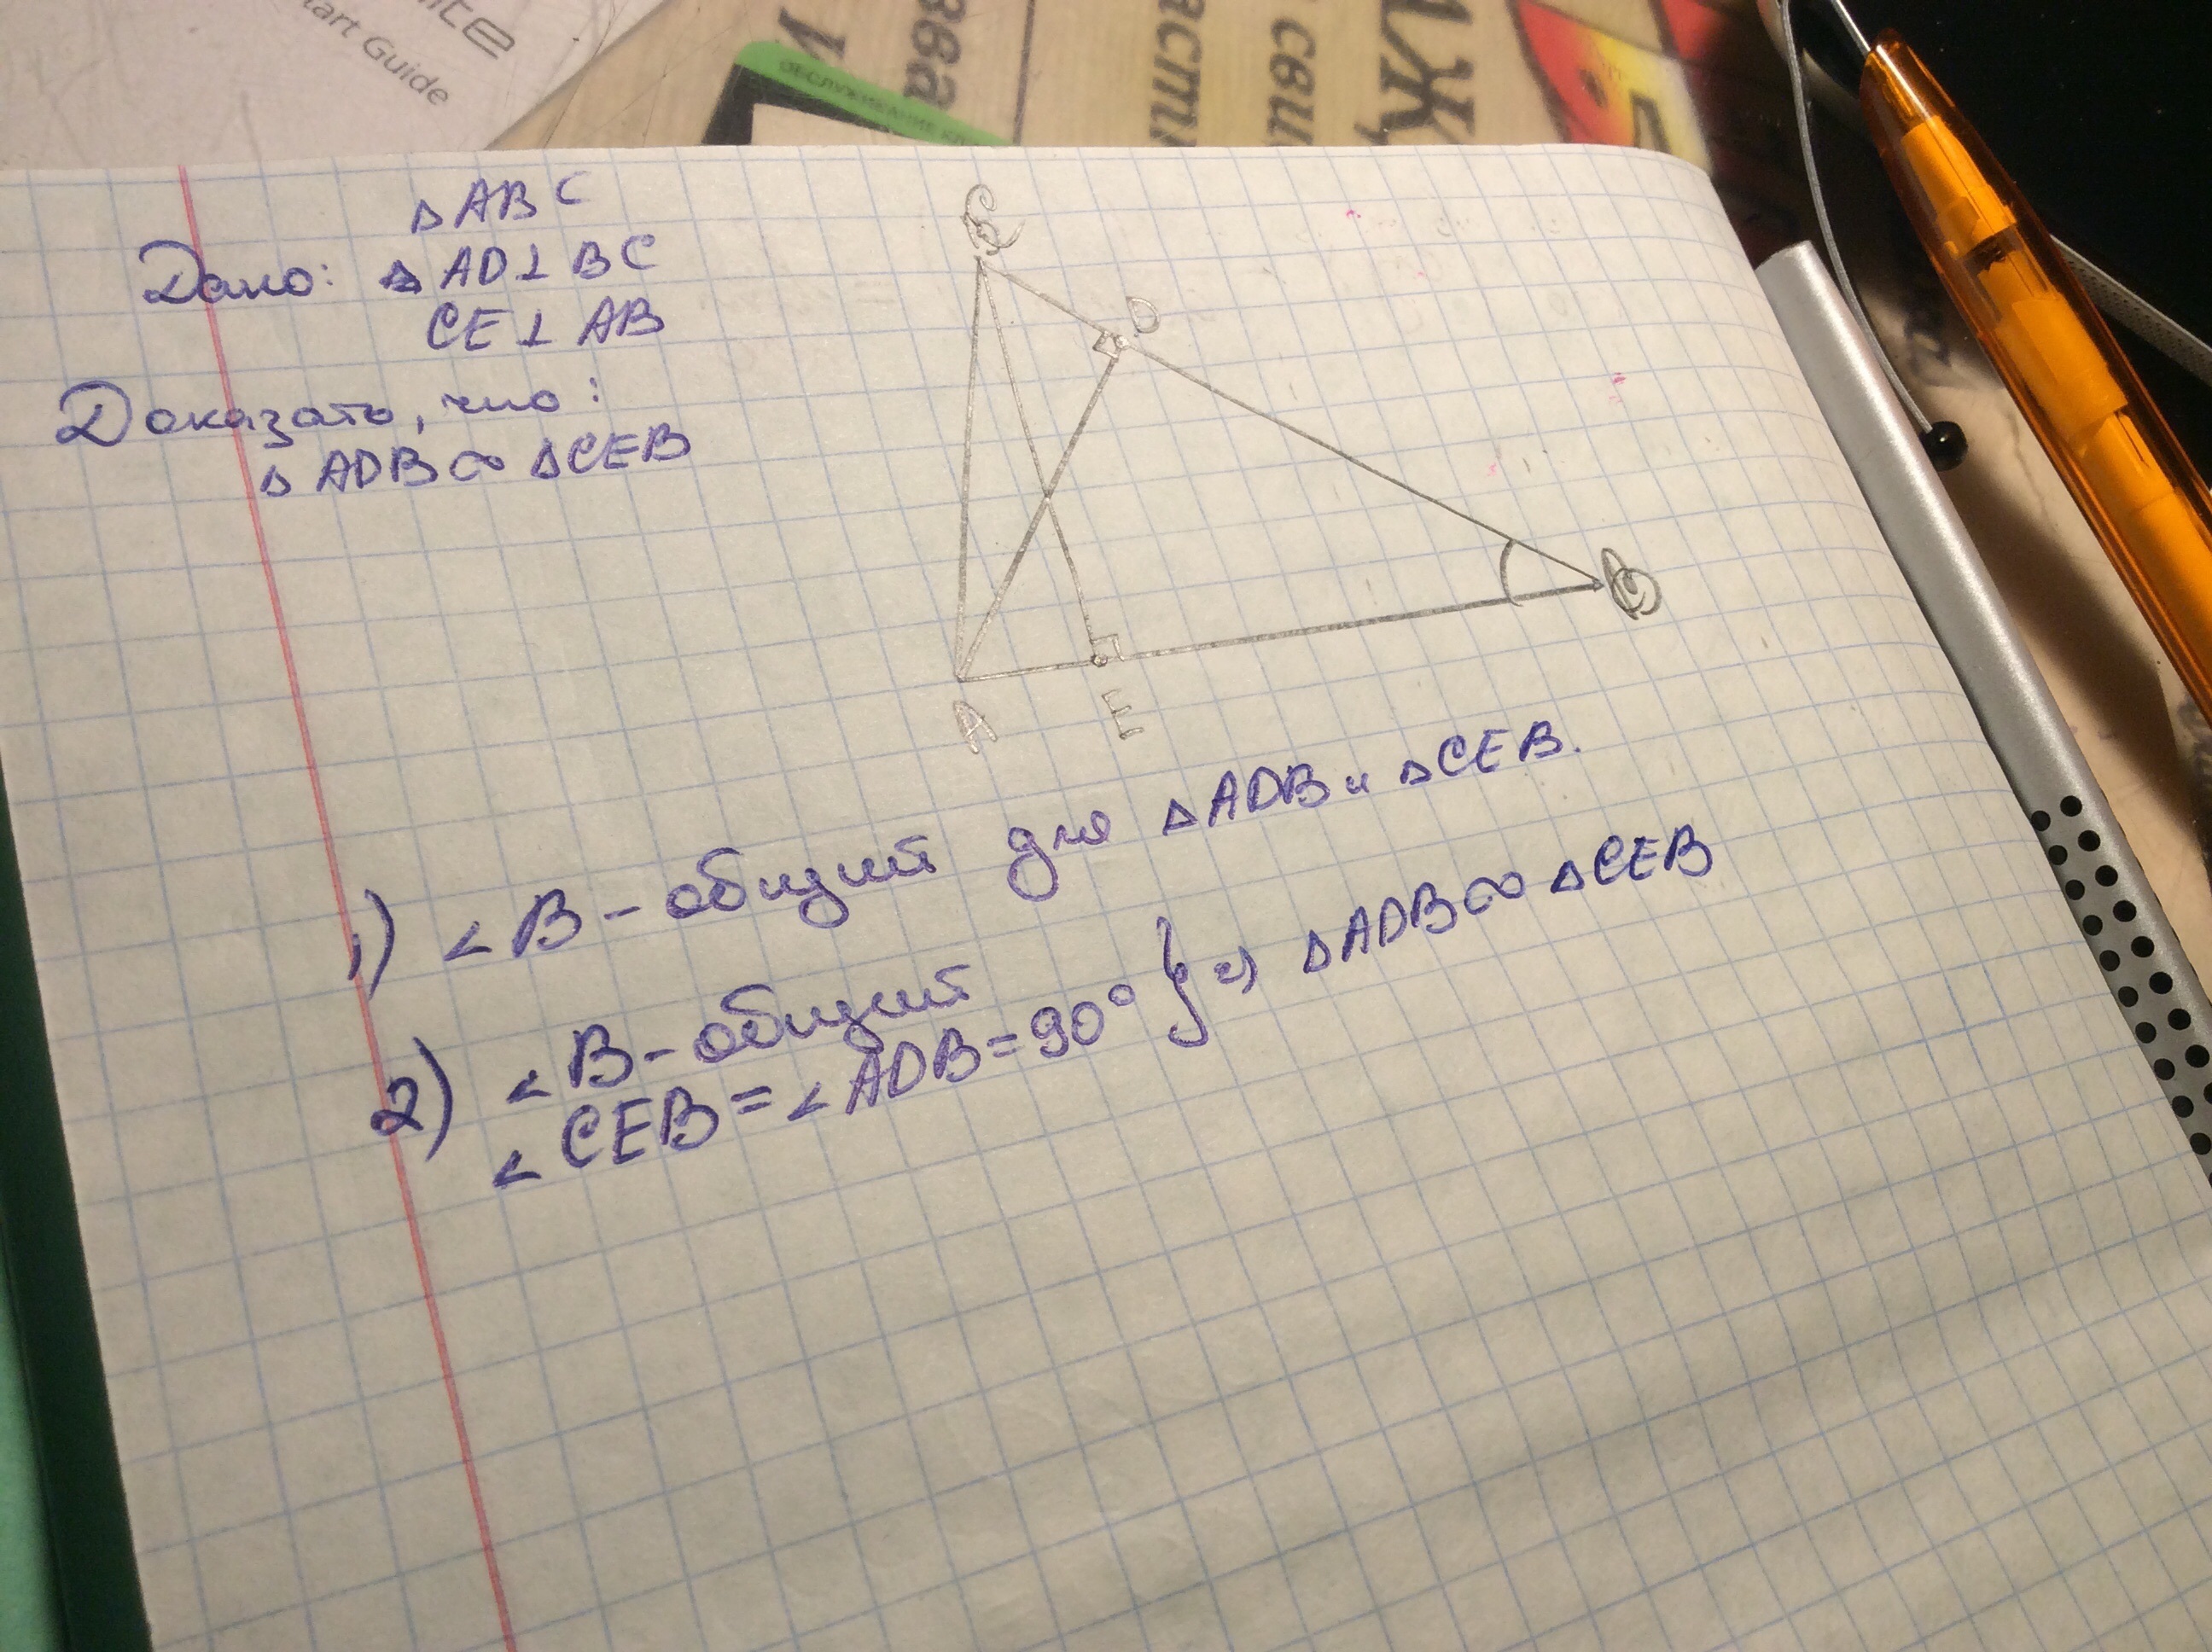 art Guide
ОБСЛУЖИВАНИЕ
△ABC
Дано: △ AD⊥BC
CE⊥AB
Доказать, что:
△ADB∞△CEB
C
D
B
A
E
1) ∠B – общий для △ADB и △CEB.
2) ∠B – общий
∠CEB = ∠ADB = 90° } => △ADB∞△CEB